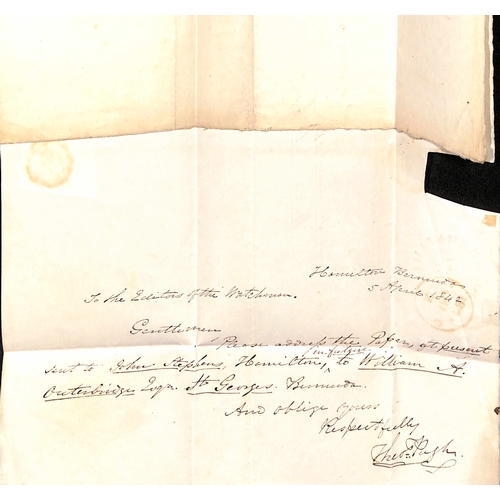 Hamilton Bermuda
5 April 1842
To the Editors of the Watchman.
Gentlemen
Please address the Papers, at present
sent to John Stephens, Hamilton, in future, to William A.
Outerbridge Esqr. St. Georges. Bermuda.
And oblige yours
Respectfully
Pugh